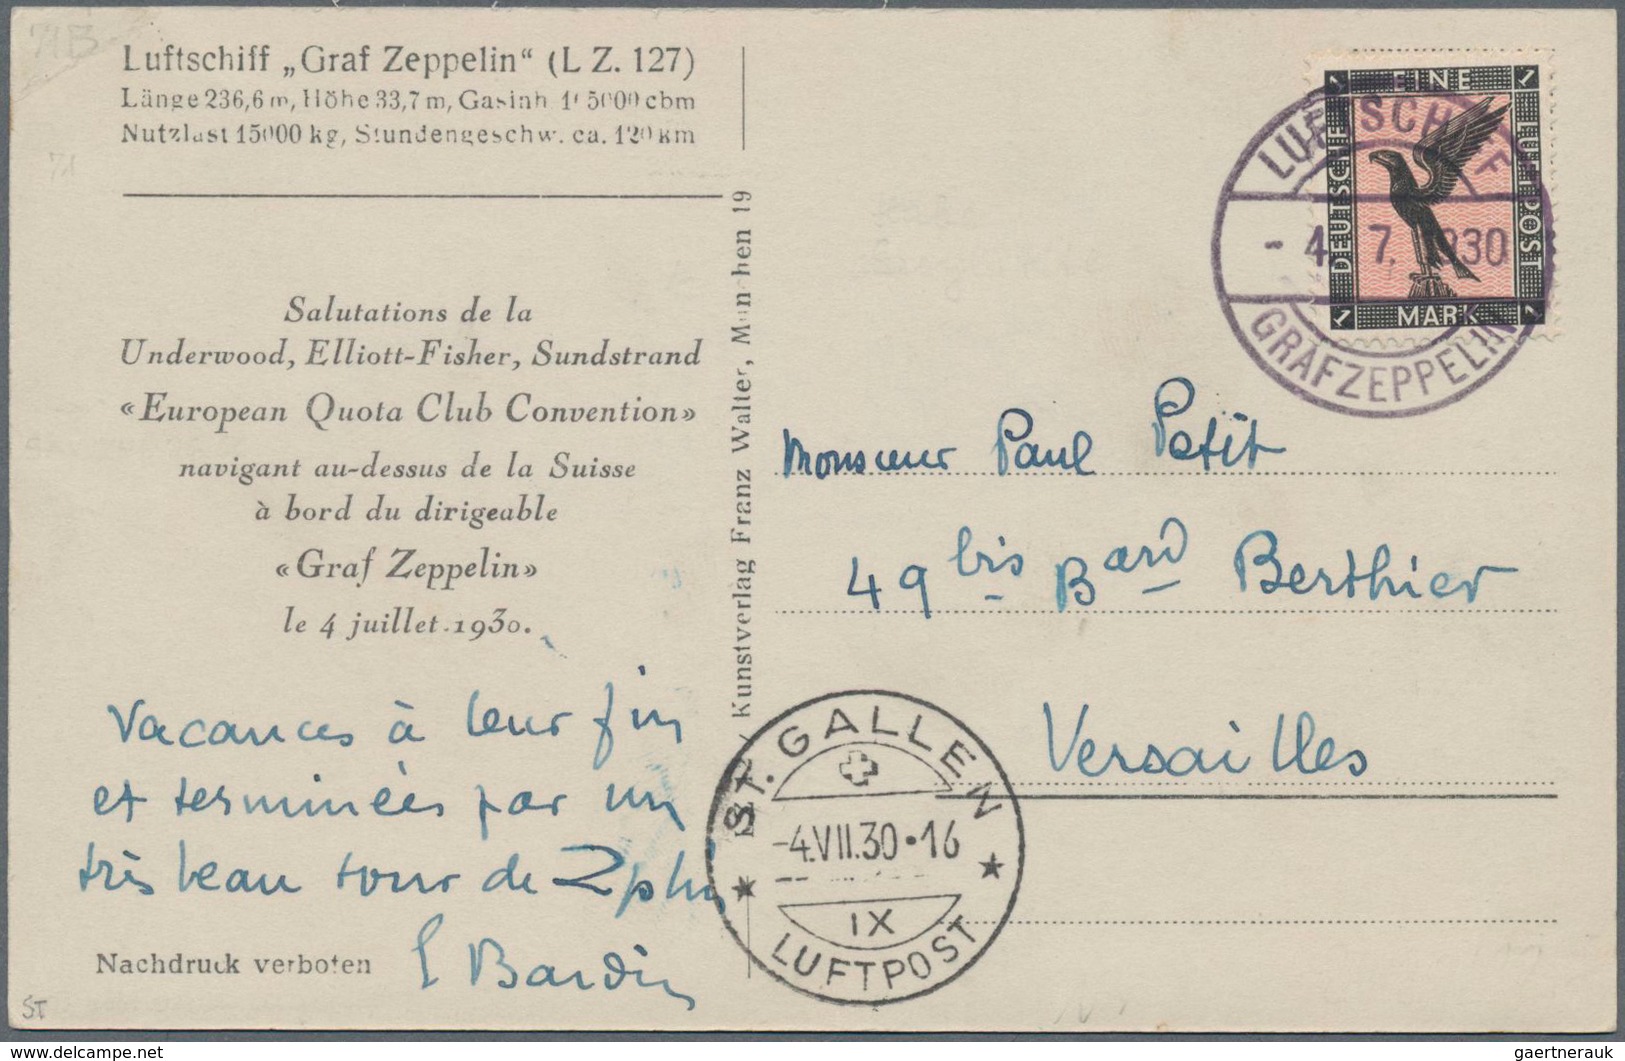 Luftschiff „Graf Zeppelin“ (L Z. 127)
Länge 236,6 m, Höhe 33,7 m, Gasinh 105000 cbm
Nutzlast 15000 kg, Stundengeschw. ca. 120 km
71B
71
Salutations de la
Underwood, Elliott-Fisher, Sundstrand
«European Quota Club Convention»
navigant au-dessus de la Suisse
à bord du dirigeable
«Graf Zeppelin»
le 4 juillet 1930.
Vacances à leur fin
et terminées par un
très beau tour de
Bardin
Nachdruck verboten
ST
Kunstverlag Franz Walter, München 19
EINE
DEUTSCHE
LUFTPOST
1 MARK 1
1 1
LUFTSCHIFF
- 4. 7. 1930
GRAF ZEPPELIN
Monsieur Paul Petit
49 bis Bard Berthier
Versailles
ST. GALLEN
-4.VII.30•16
IX
LUFTPOST
gaertnerauk